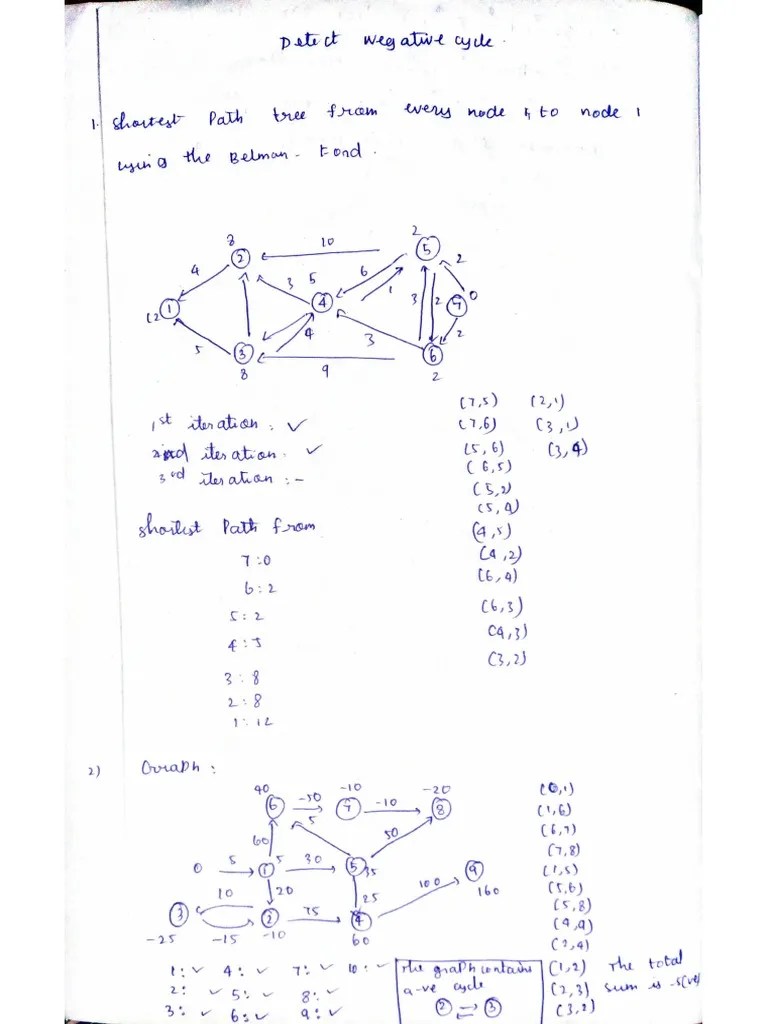 Detect Negative cycle.
1. Shortest Path tree from every node to node 1
using the Belman - Ford.
8 10 2
2 5 2
4 3 5 6 1
1 4 3 2 7 0
12 3 4 3 6 2
5 8 9 2
(7,5) (2,1)
1st iteration : ✓ (7,6) (3,1)
2nd iteration : ✓ (5,6) (3,4)
3rd iteration : - (6,5)
(5,2)
(5,4)
Shortest Path from (4,5)
7 : 0 (4,2)
6 : 2 (6,4)
5 : 2 (6,3)
4 : 5 (4,3)
3 : 8 (3,2)
2 : 8
1 : 12
2) Graph :
40 -50 -10 -10 -20 (0,1)
6 7 8 (1,6)
60 5 50 (6,7)
(7,8)
0 5 1 5 30 5 35 9 (1,5)
10 20 25 100 160 (5,6)
3 2 75 4 (5,8)
-25 -15 -10 60 (4,9)
(2,4)
1: ✓ 4: ✓ 7: ✓ 10: ✓ The graph contains (1,2) The total
2: ✓ 5: ✓ 8: ✓ a -ve cycle (2,3) sum is -5(ve)
3: ✓ 6: ✓ 9: ✓ 2 ⇌ 3 (3,2)